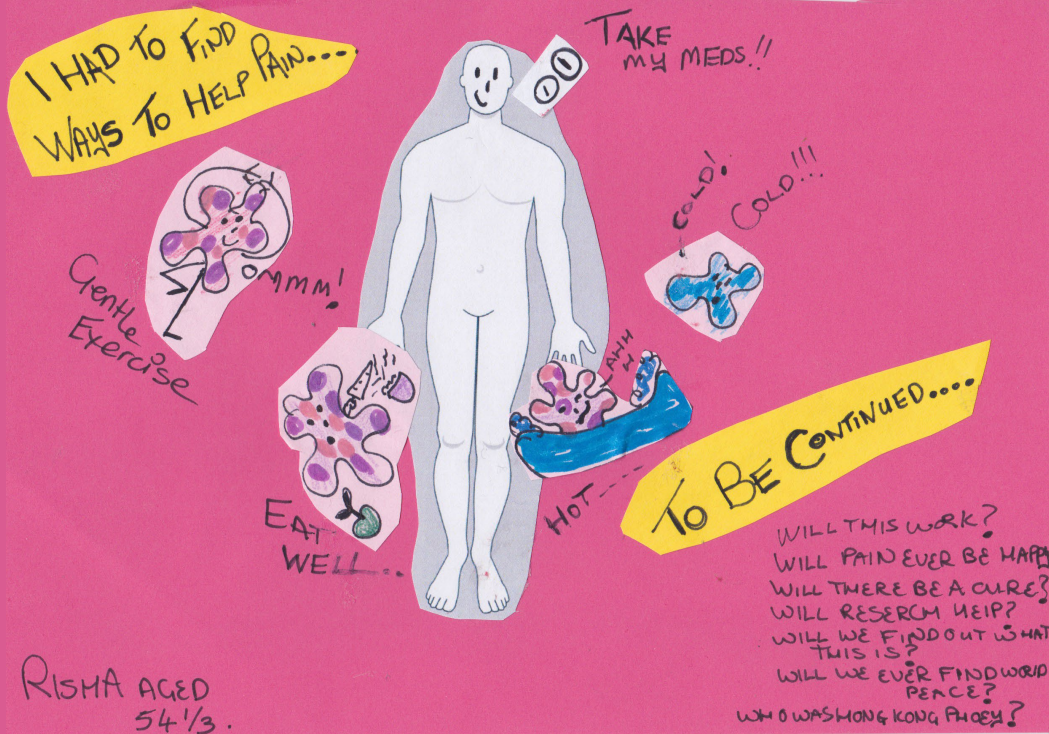 I HAD TO FIND
WAYS TO HELP PAIN...
TAKE
MY MEDS!!
COLD!
COLD!!!
OMMM!
Gentle
Exercise
AHH
H
EAT
WELL...
HOT
TO BE CONTINUED....
WILL THIS WORK?
WILL PAIN EVER BE HAPPY
WILL THERE BE A CURE?
WILL RESERCH HELP?
WILL WE FIND OUT WHAT
THIS IS?
WILL WE EVER FIND WORLD
PEACE?
WHO WAS HONG KONG PHOEY?
RISHA AGED
54 1/3.